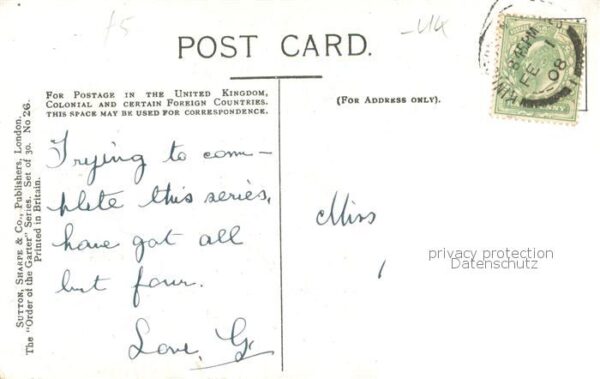 £5
UK
POST CARD.
FOR POSTAGE IN THE UNITED KINGDOM,
COLONIAL AND CERTAIN FOREIGN COUNTRIES.
THIS SPACE MAY BE USED FOR CORRESPONDENCE.
(FOR ADDRESS ONLY).
SUTTON, SHARPE & CO., Publishers, London.
The "Order of the Garter" Series. Set of 30. No 26.
Printed in Britain.
Trying to com-
plete this series,
have got all
but four.
Love, G.
Miss
privacy protection
Datenschutz
FE 1
08